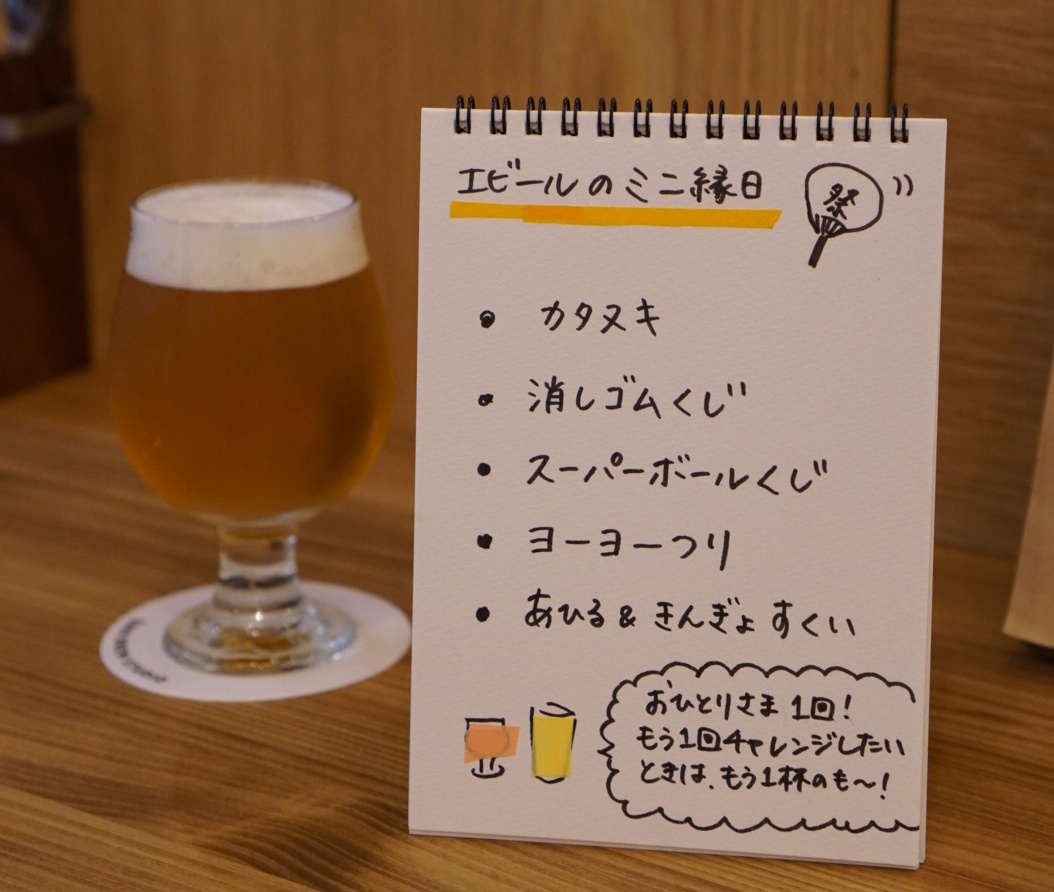 エビールのミニ縁日
祭
• カタヌキ
• 消しゴムくじ
• スーパーボールくじ
• ヨーヨーつり
• あひる & きんぎょすくい
おひとりさま 1回!
もう1回チャレンジしたい
ときは、もう1杯のも〜!